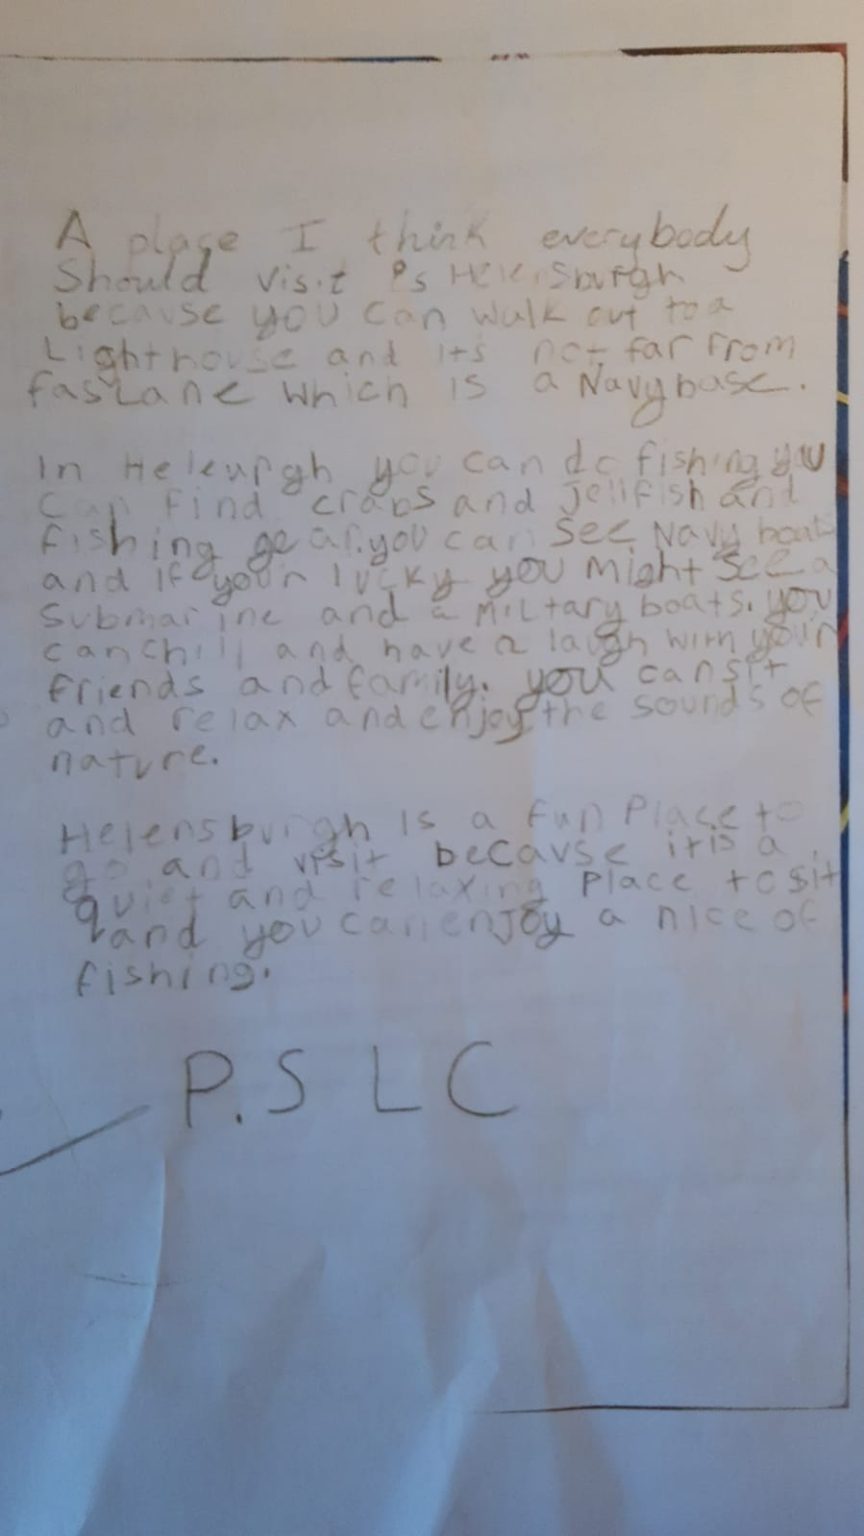 A place I think everybody
Should visit is Helensburgh
because you can walk out to a
Lighthouse and its not far from
fasLane which is a Navy base.
In Heleurgh you can do fishing you
can find crabs and jellfish and
fishing gear. you can see Navy boats
and if your lucky you might see a
submarine and a miltary boats. you
can chill and have a laugh with your
friends and family. you can sit
and relax and enjoy the sounds of
nature.
Helensburgh is a fun Place to
go and visit because it is a
quiet and relaxing place to sit
and you can enjoy a nice of
fishing.
P.S L C